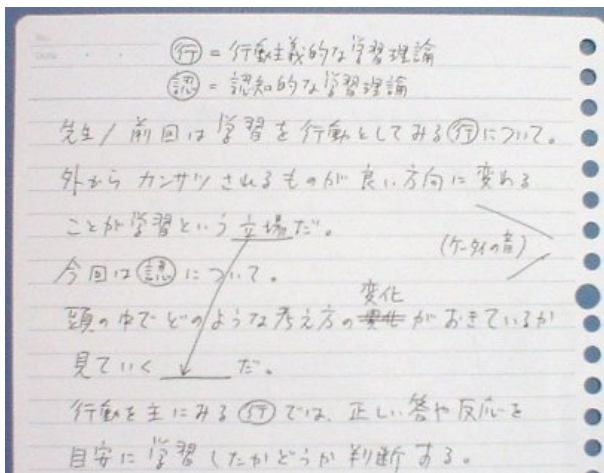 ㊞行 = 行動主義的な学習理論
認 = 認知的な学習理論
先生/ 前回は学習を行動としてみる行について。
外から カンサツ されるものが 良い方向に変わる
ことが学習という立場だ。
(ケータイの音)
今回は認について。
頭の中でどのような考え方の変化がおきているか
見ていく ____ だ。
行動を主にみる行では、正しい答や反応を
目安に学習したかどうか判断する。